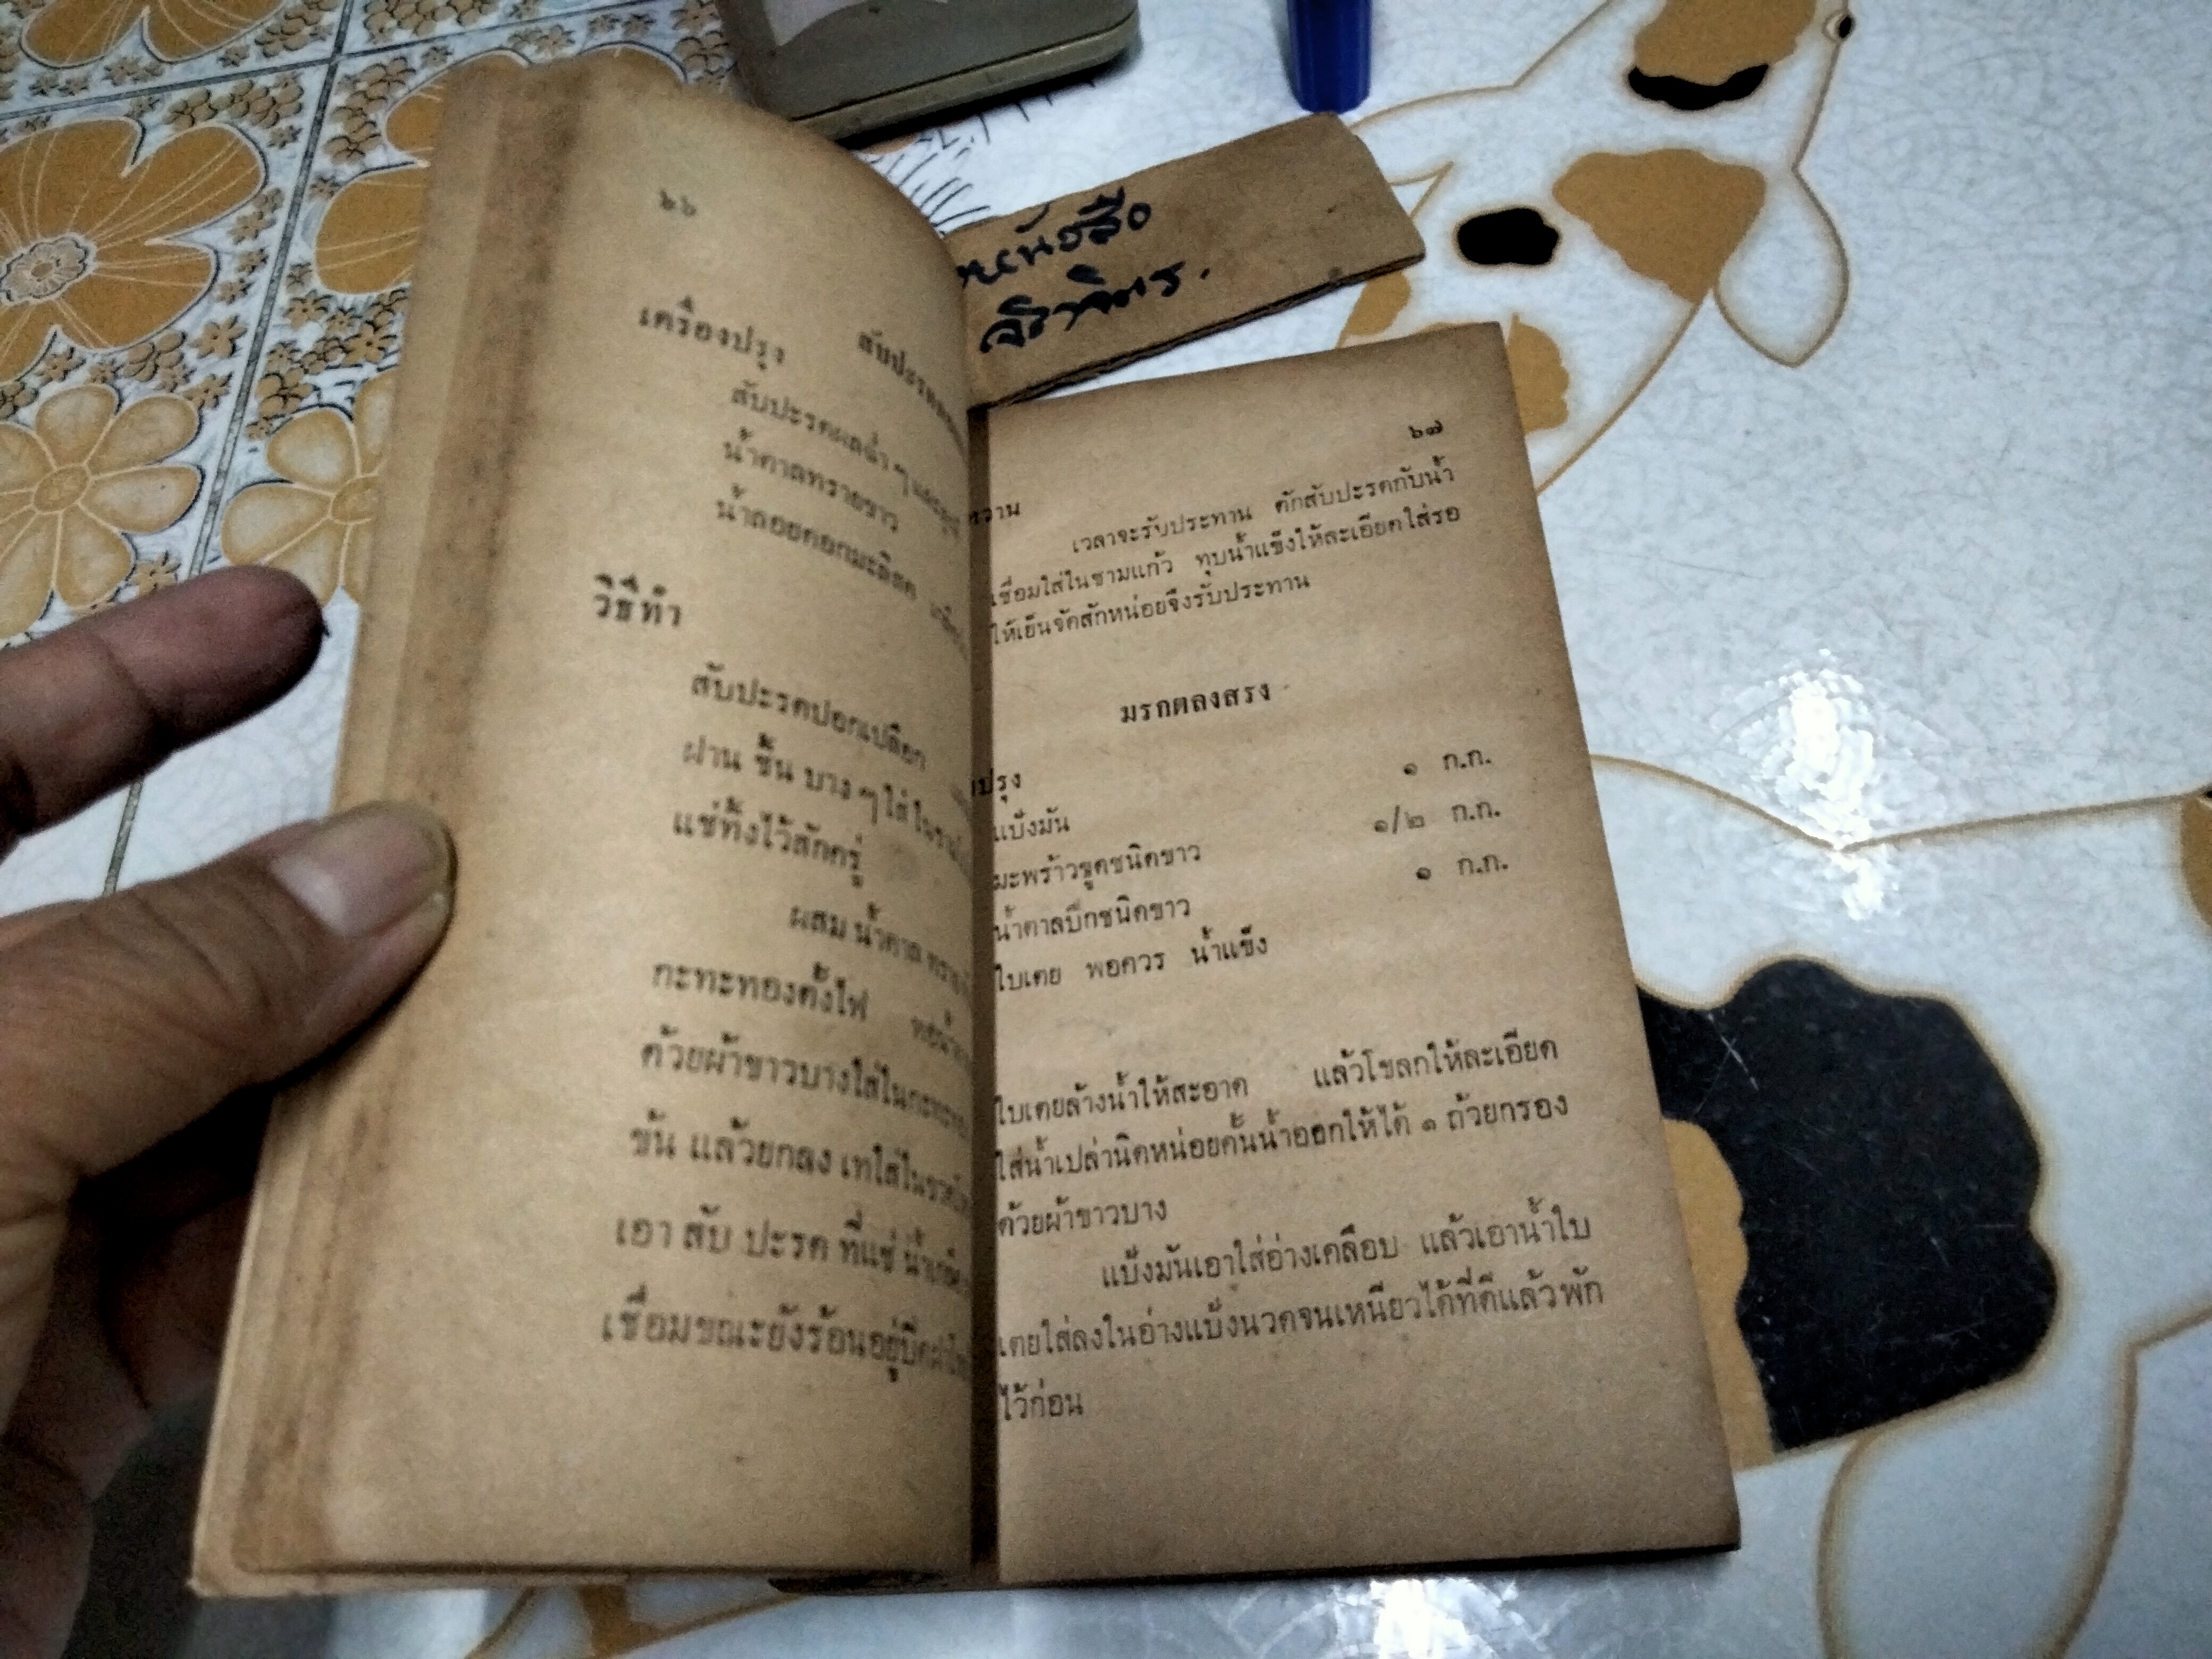 ๖๖
เครื่องปรุง
สับปะรดผลฉ่ำ ๆ
น้ำตาลทรายขาว
น้ำลอยดอกมะลิสด
วิธีทำ
สับปะรดปอกเปลือก
ฝาน ชิ้น บาง ๆ ใส่ ใน
แช่ทิ้งไว้สักครู่
ผสม น้ำตาล
กะทะทองตั้งไฟ
ด้วยผ้าขาวบางใส่ในกะทะ
ข้น แล้วยกลง เทใส่ใน
เอา สับ ปะรด ที่แช่
เชื่อมขณะยังร้อนอยู่ปิด
หนังสือ
๖๗
หวาน
เวลาจะรับประทาน ตักสับปะรดกับน้ำ
เชื่อมใส่ในชามแก้ว ทุบน้ำแข็งให้ละเอียดใส่รอ
ให้เย็นจัดสักหน่อยจึงรับประทาน
มรกตลงสรง
ปรุง
แป้งมัน ๑ ก.ก.
มะพร้าวขูดชนิดขาว ๑/๒ ก.ก.
น้ำตาลปึกชนิดขาว ๑ ก.ก.
ใบเตย พอควร น้ำแข็ง
ใบเตยล้างน้ำให้สะอาด แล้วโขลกให้ละเอียด
ใส่น้ำเปล่านิดหน่อยคั้นน้ำออกให้ได้ ๑ ถ้วยกรอง
ด้วยผ้าขาวบาง
แป้งมันเอาใส่อ่างเคลือบ แล้วเอาน้ำใบ
เตยใส่ลงในอ่างแป้งนวดจนเหนียวได้ที่ดีแล้วพัก
ไว้ก่อน